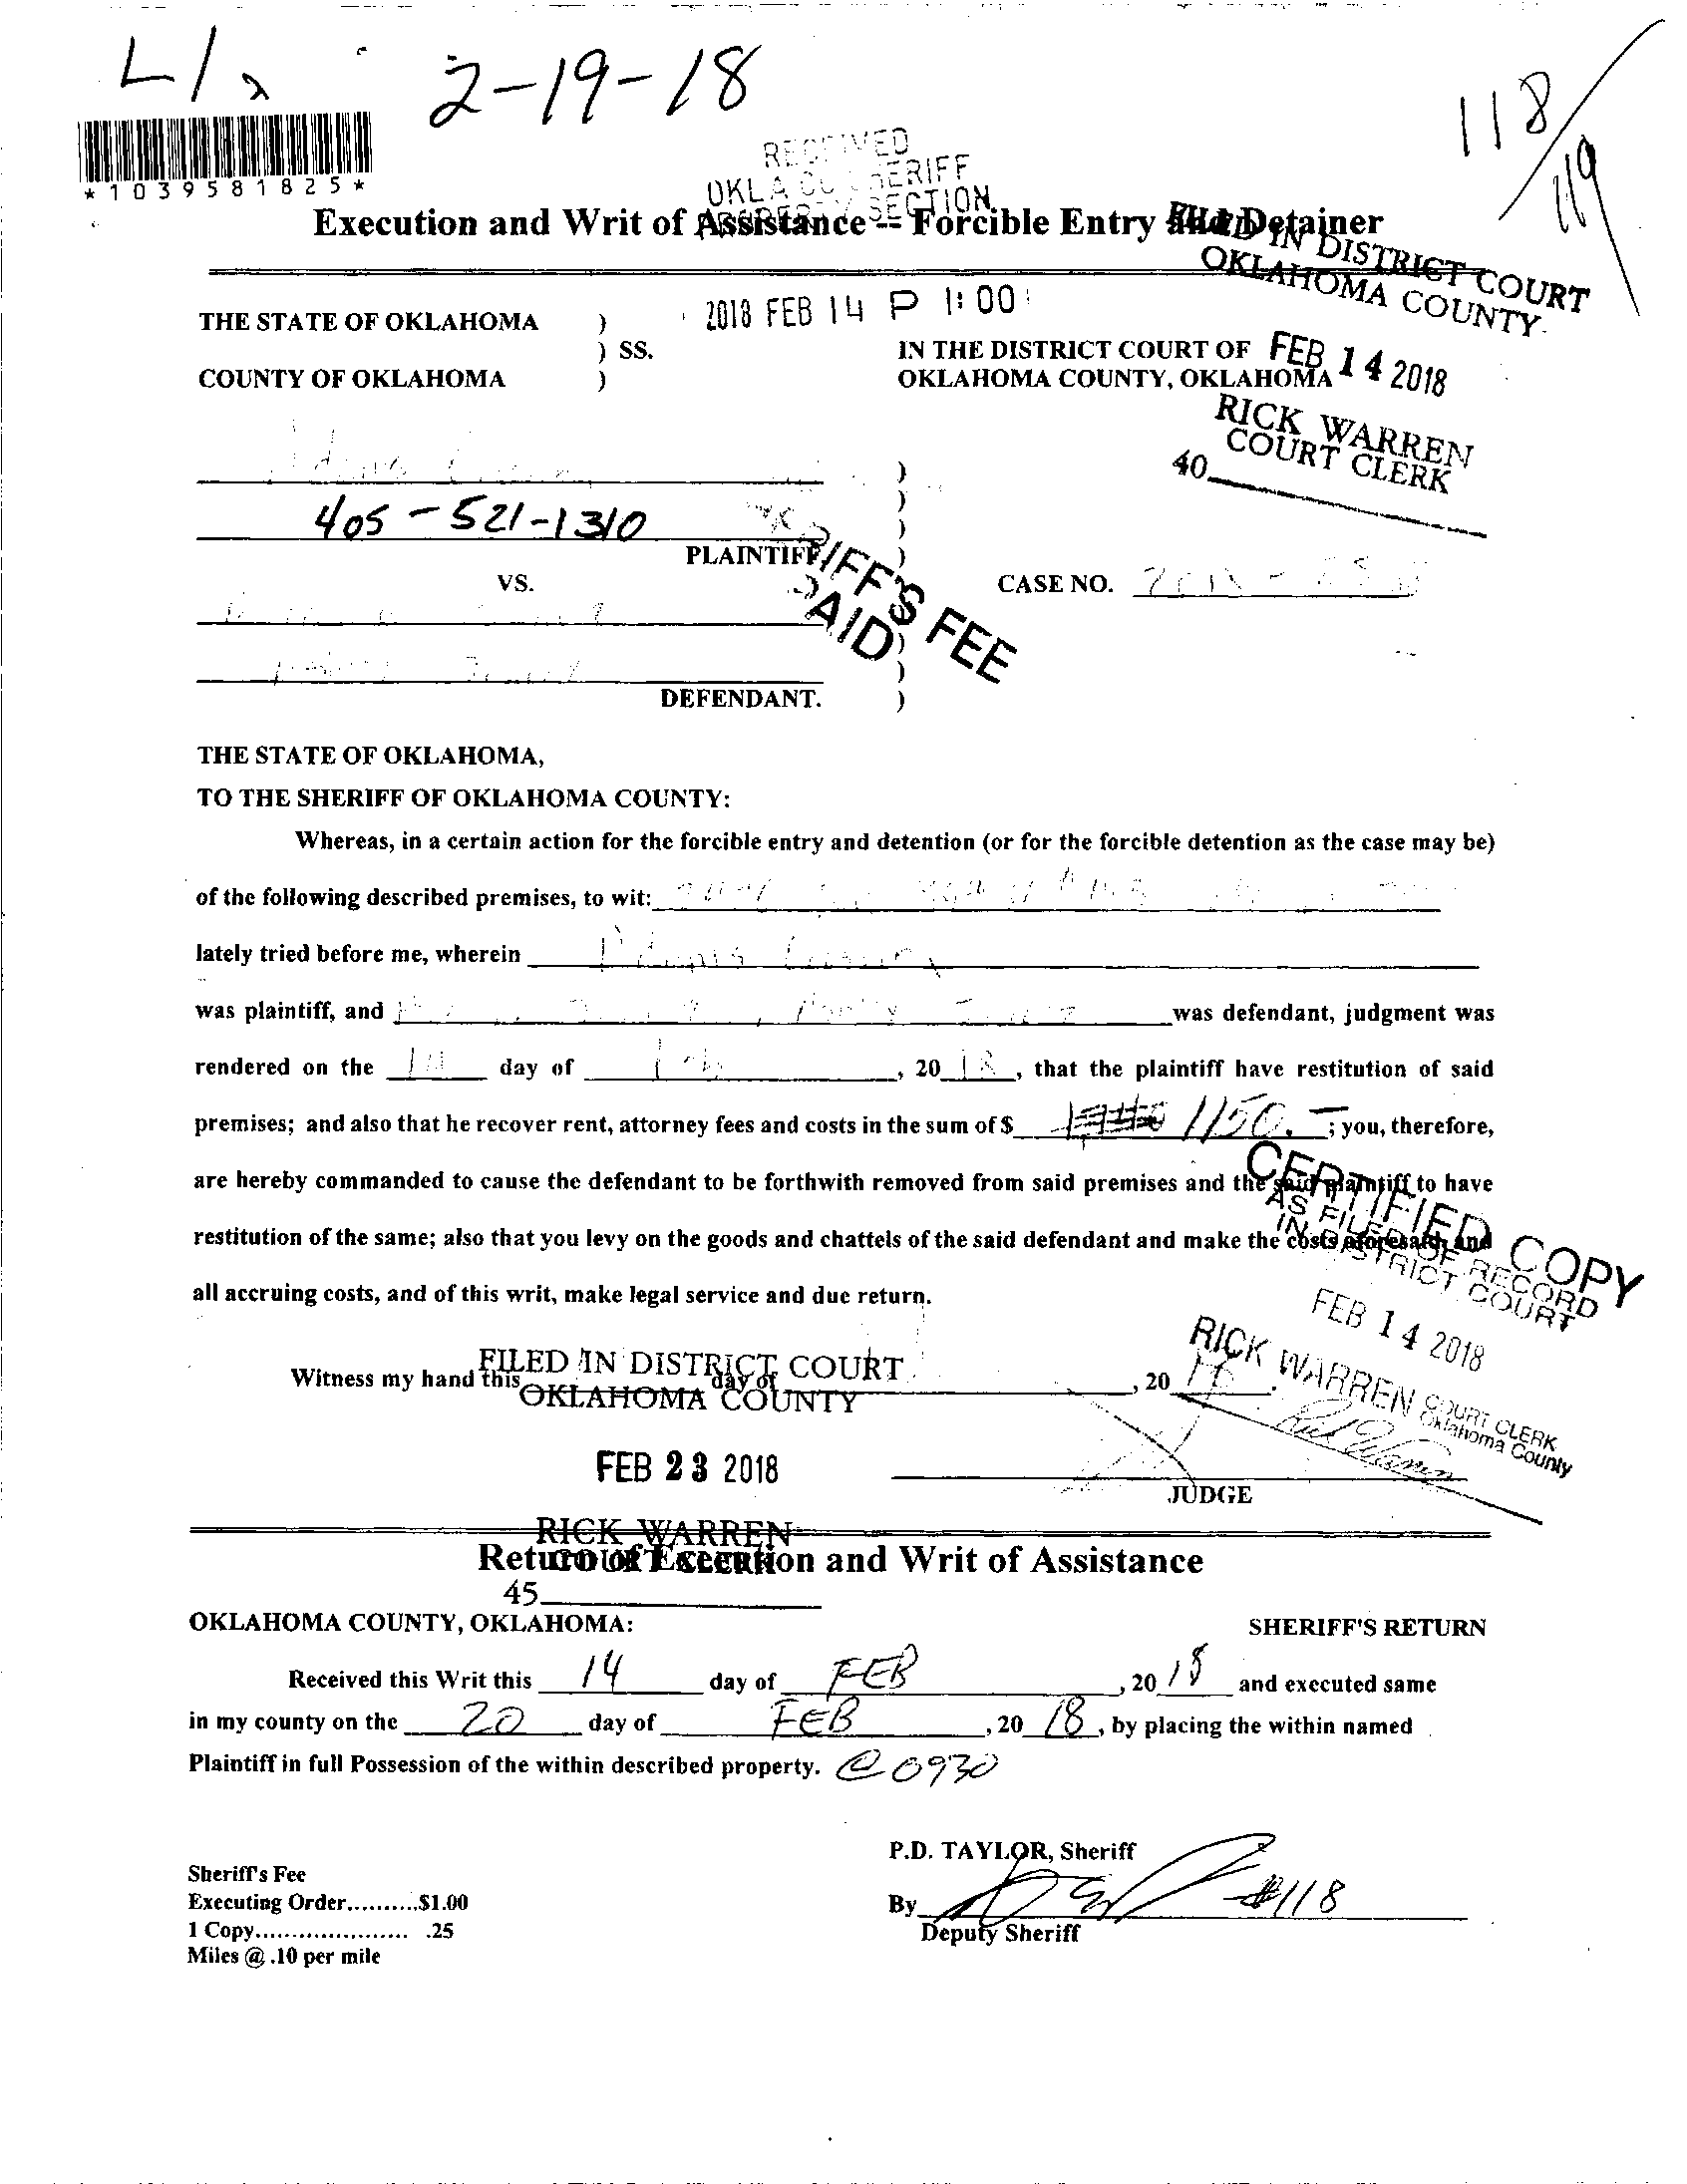 2-19-18
118/119
*1039581825*
RECEIVED
OKLA CO SHERIFF
SECTION
Execution and Writ of Assistance -- Forcible Entry and Detainer
FILED IN DISTRICT COURT
OKLAHOMA COUNTY
2018 FEB 14 P 1:00
THE STATE OF OKLAHOMA )
) SS.
COUNTY OF OKLAHOMA )
IN THE DISTRICT COURT OF
OKLAHOMA COUNTY, OKLAHOMA
FEB 14 2018
RICK WARREN
COURT CLERK
40
405-521-1310
PLAINTIFF
SHERIFF'S FEE
PAID
VS.
CASE NO.
DEFENDANT.
THE STATE OF OKLAHOMA,
TO THE SHERIFF OF OKLAHOMA COUNTY:
Whereas, in a certain action for the forcible entry and detention (or for the forcible detention as the case may be)
of the following described premises, to wit:
lately tried before me, wherein
was plaintiff, and was defendant, judgment was
rendered on the day of , 20 18, that the plaintiff have restitution of said
premises; and also that he recover rent, attorney fees and costs in the sum of $ 1150.-; you, therefore,
are hereby commanded to cause the defendant to be forthwith removed from said premises and the said plaintiff to have
restitution of the same; also that you levy on the goods and chattels of the said defendant and make the costs aforesaid, and
all accruing costs, and of this writ, make legal service and due return.
CERTIFIED COPY
AS FILED OF RECORD
IN DISTRICT COURT
FEB 14 2018
RICK WARREN COURT CLERK
Oklahoma County
Rick Warren
Witness my hand this day of , 20
FILED IN DISTRICT COURT
OKLAHOMA COUNTY
FEB 23 2018
JUDGE
RICK WARREN
COURT CLERK
45
Return of Execution and Writ of Assistance
OKLAHOMA COUNTY, OKLAHOMA:
SHERIFF'S RETURN
Received this Writ this 14 day of FEB , 20 18 and executed same
in my county on the 20 day of FEB , 20 18, by placing the within named
Plaintiff in full Possession of the within described property. @ 0930
P.D. TAYLOR, Sheriff
Sheriff's Fee
Executing Order..........$1.00
1 Copy..................... .25
Miles @ .10 per mile
By #118
Deputy Sheriff